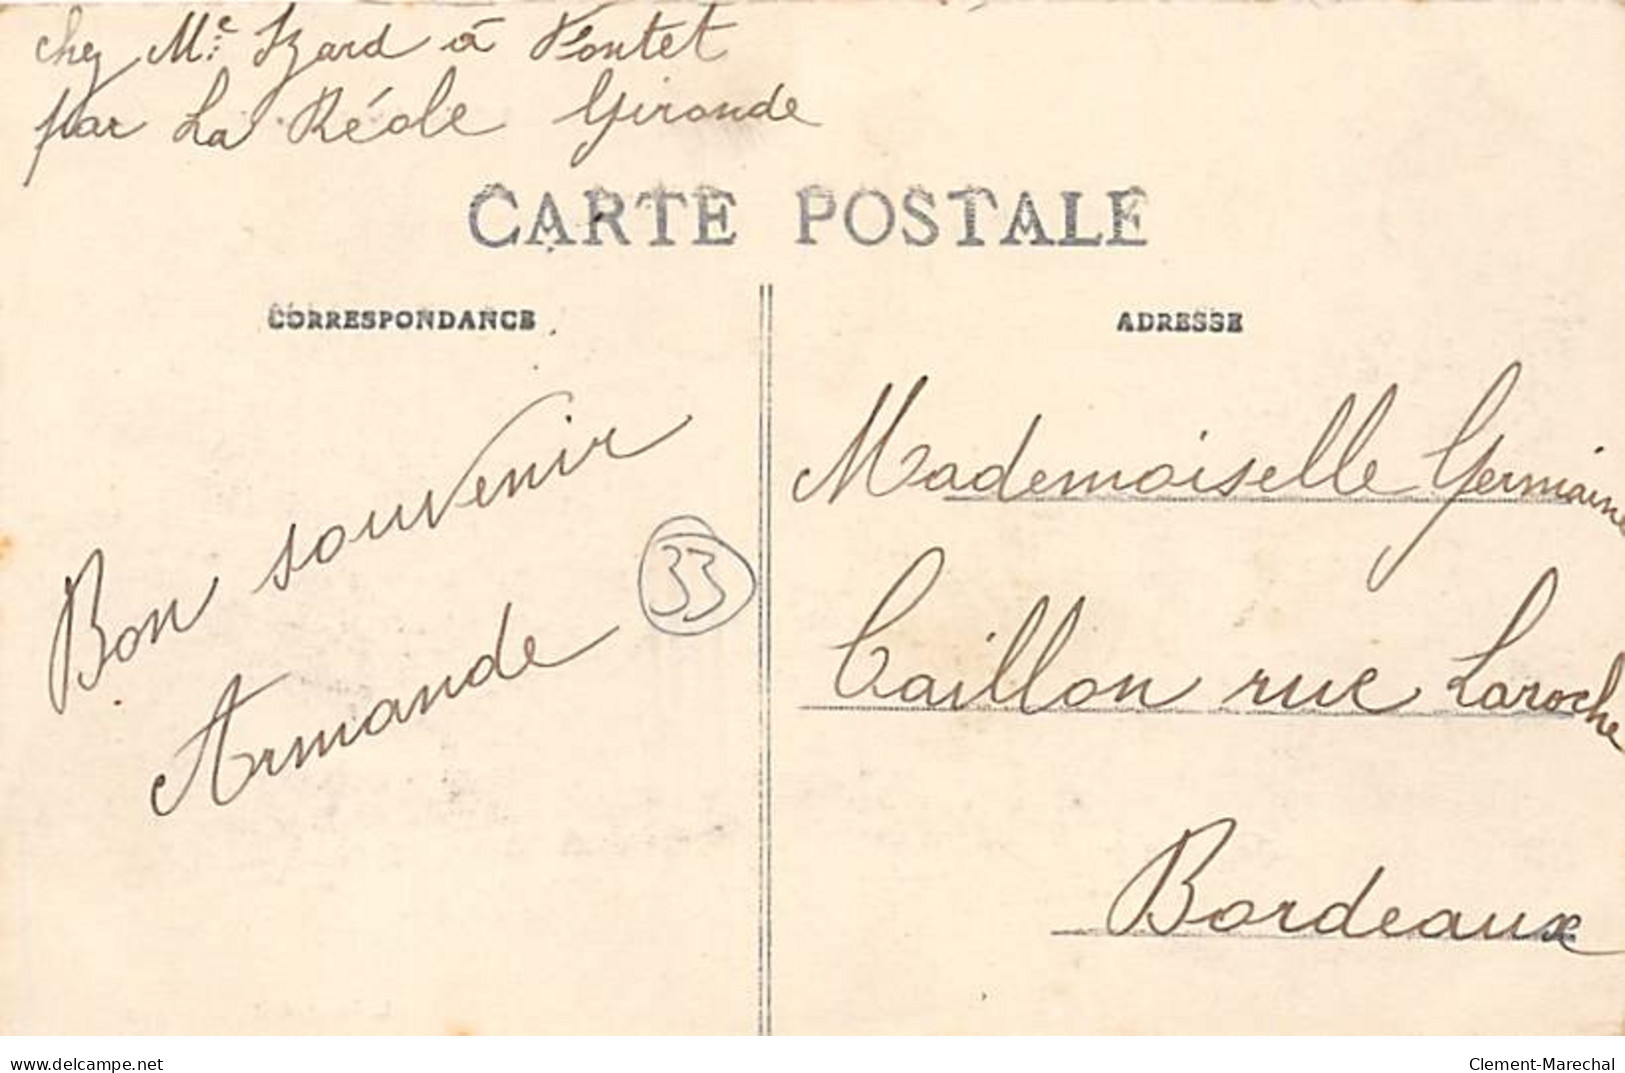 chez Mr. Izard à Pontet
par La Réole Gironde
CARTE POSTALE
CORRESPONDANCE
ADRESSE
Bon souvenir
Armande
33
Mademoiselle Germaine
Caillon rue Laroche
Bordeaux
delcampe.net
Clement-Marechal